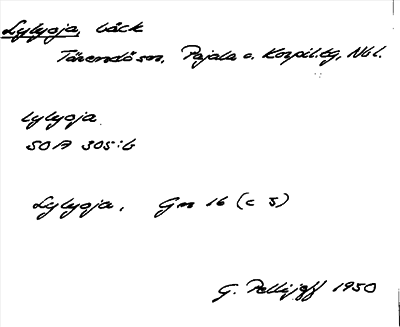 Lylyoja, bäck
Tärendö sn, Pajala o. Korpil. tg, Nbl.
lylyoja
SOA 305:6
Lylyoja, Gn 16 (c 5)
G. Pellijeff 1950